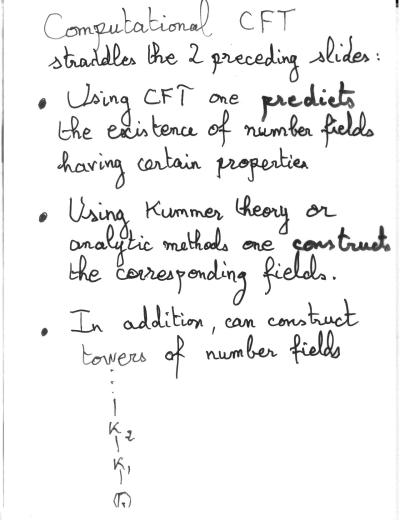 Computational CFT
straddles the 2 preceding slides:
• Using CFT one predicts
the existence of number fields
having certain properties
• Using Kummer theory or
analytic methods one constructs
the corresponding fields.
• In addition, can construct
towers of number fields
⋮
|
K₂
|
K₁
|
ℚ